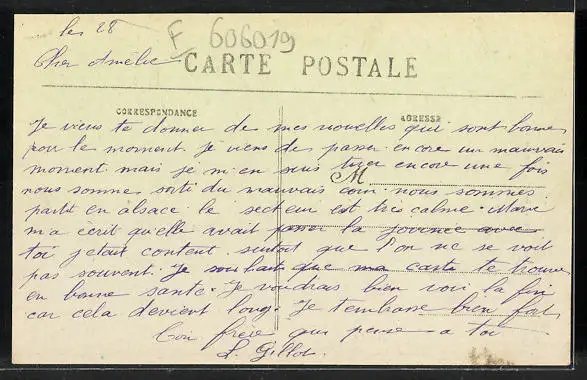 les 28
F 606019
Cher Amélie
CARTE POSTALE
CORRESPONDANCE
ADRESSE
Je viens te donner de mes nouvelles qui sont bonne
pour le moment. Je viens de passer encore un mauvais
moment mais je m'en suis tirer encore une fois
M
nous somme sorti du mauvais coin. nous sommes
partit en alsace le secteur est très calme. Marie
m'a écrit qu'elle avait passer la journée avec
toi j'etait content surtout que l'on ne se voit
pas souvent. Je souhaite que ma carte te trouve
en bonne santé. Je voudrais bien voir la fin
car cela devient long. Je t'embrasse bien fort
Ton frère qui pense a toi
Gillot